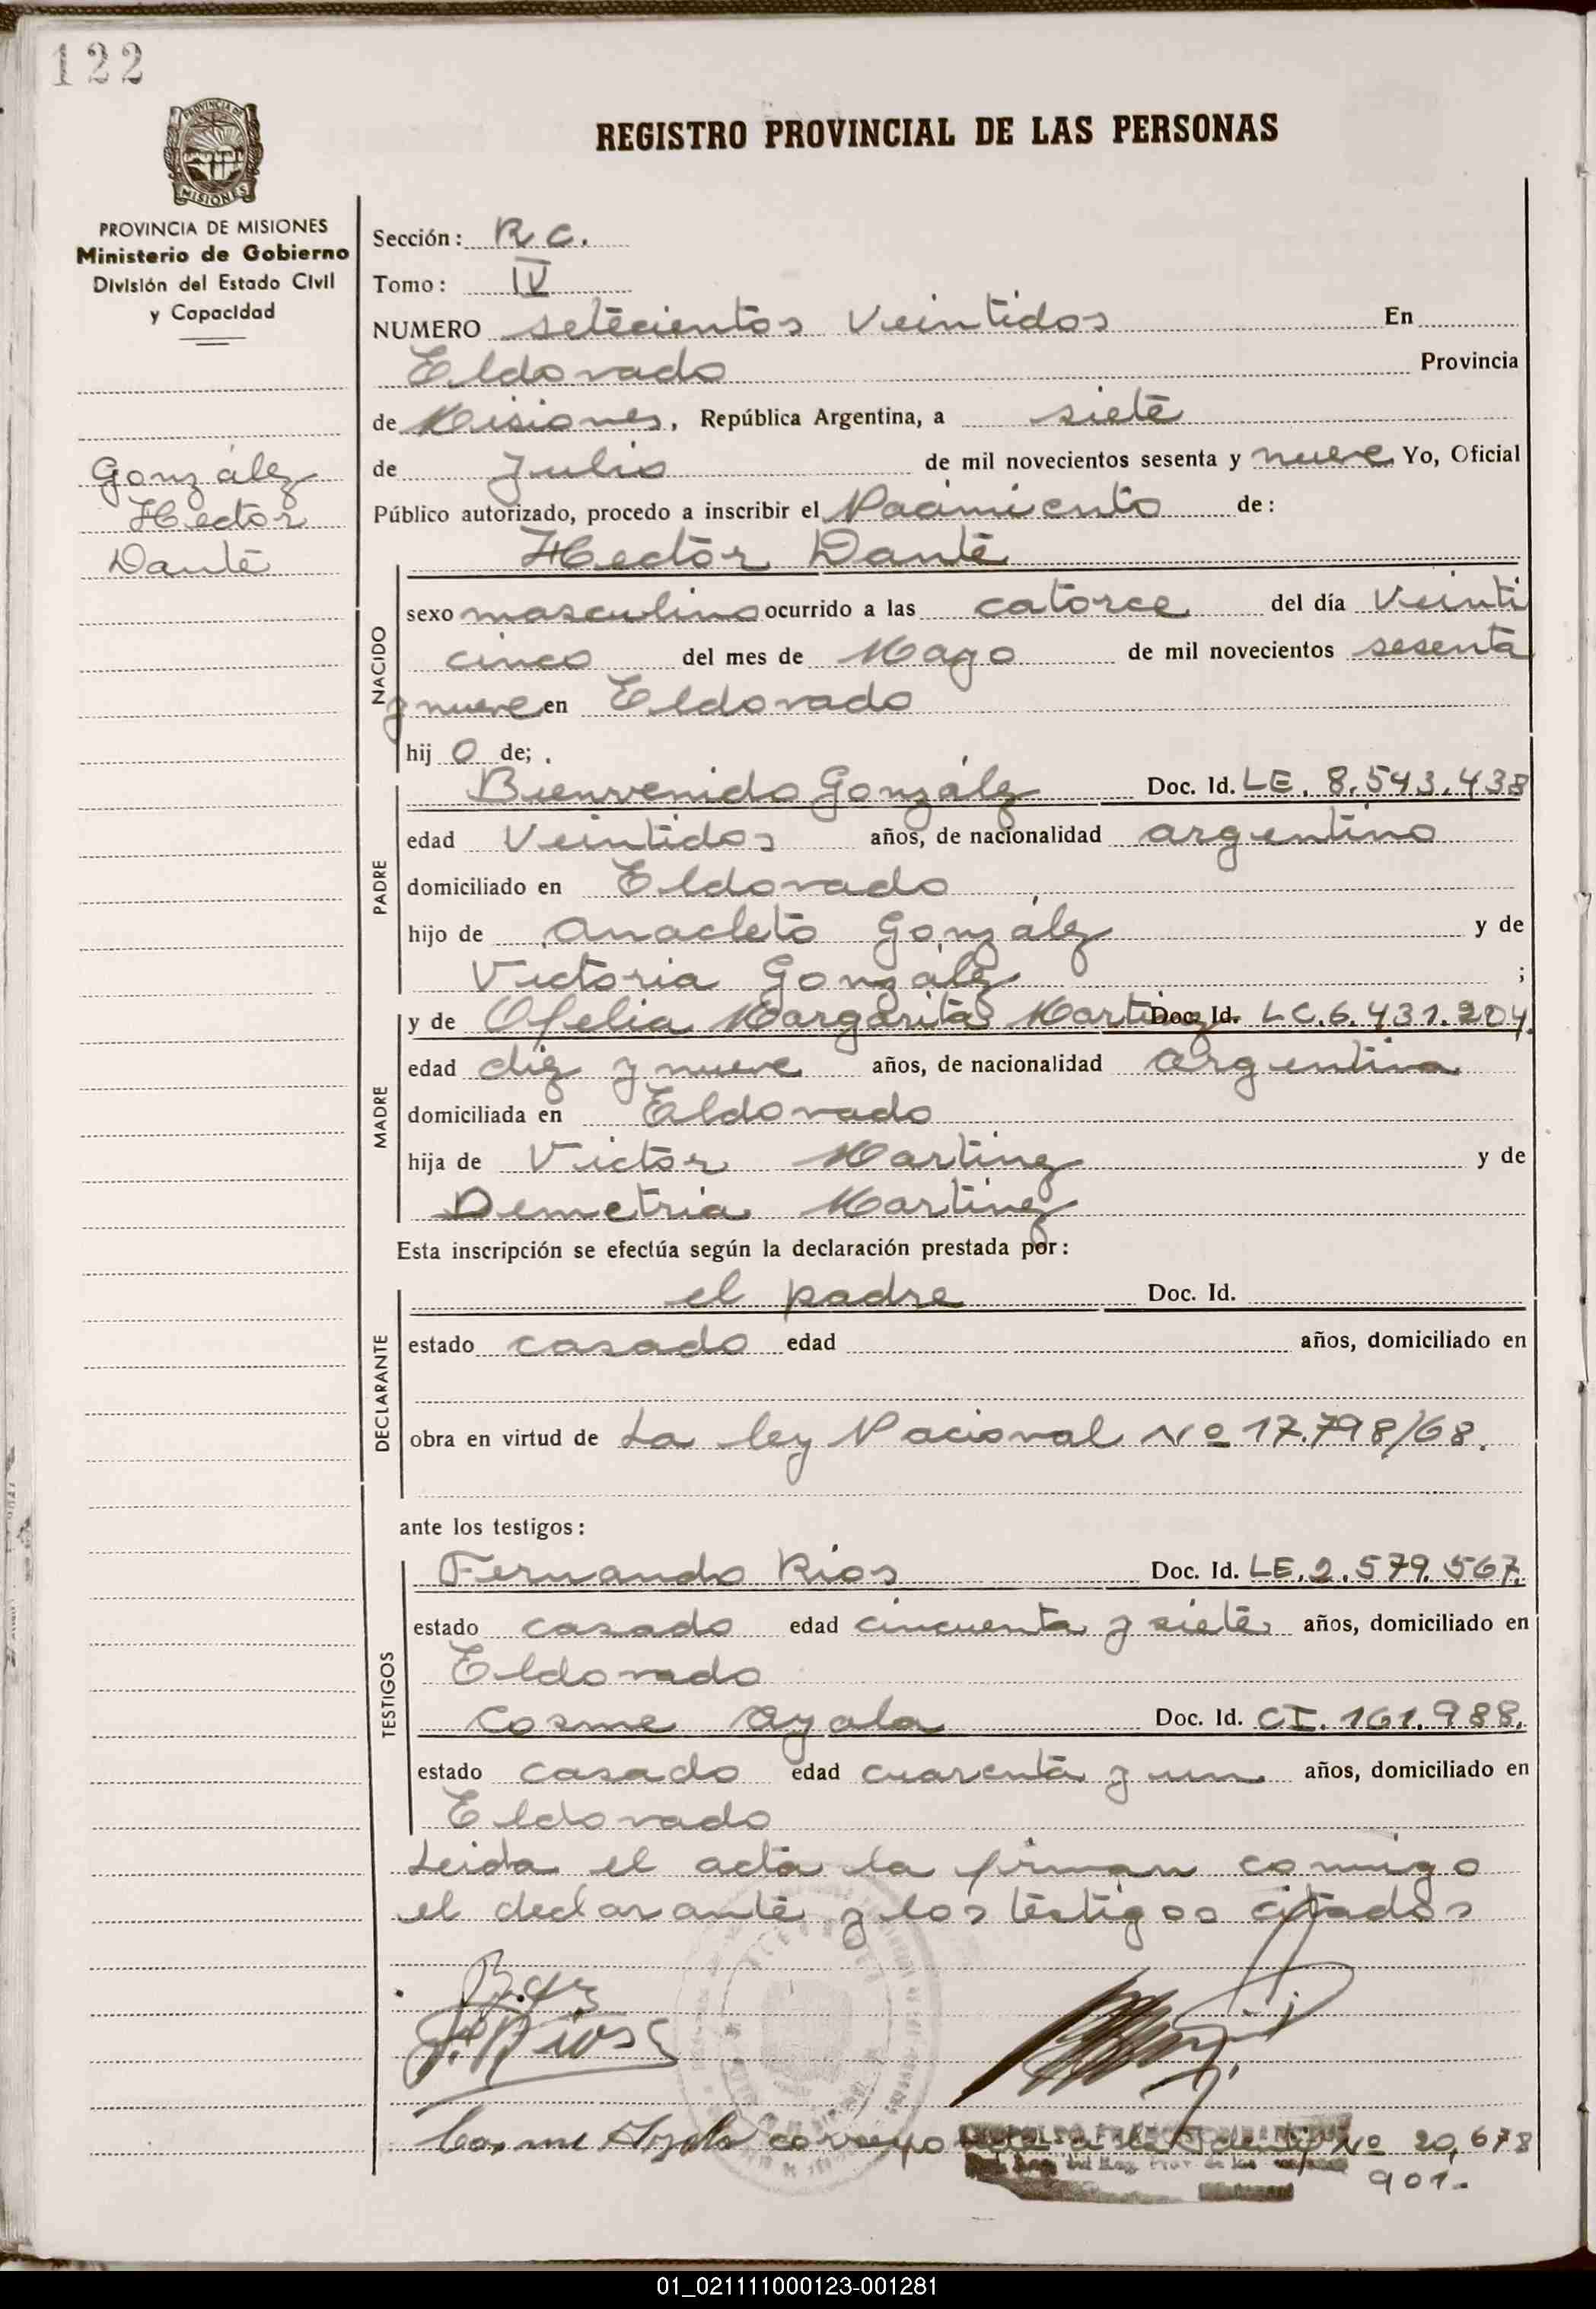 122
PROVINCIA DE
MISIONES
PROVINCIA DE MISIONES
Ministerio de Gobierno
División del Estado Civil
y Capacidad
González
Hector
Dante
REGISTRO PROVINCIAL DE LAS PERSONAS
Sección: R C.
Tomo: IV
NUMERO setecientos Veintidos En
Eldorado Provincia
de Misiones, República Argentina, a siete
de Julio de mil novecientos sesenta y nueve Yo, Oficial
Público autorizado, procedo a inscribir el Nacimiento de:
Hector Dante
NACIDO
sexo masculino ocurrido a las catorce del día Veinti
cinco del mes de Mayo de mil novecientos sesenta
y nueve en Eldorado
hij o de;
PADRE
Bienvenido González Doc. Id. LE. 8.543.438
edad Veintidos años, de nacionalidad argentino
domiciliado en Eldorado
hijo de Anacleto González y de
Victoria González ;
MADRE
y de Ofelia Margarita Martinez Doc. Id. LC.6.431.204.
edad diez y nueve años, de nacionalidad argentina
domiciliada en Eldorado
hija de Victor Martinez y de
Demetria Martinez
Esta inscripción se efectúa según la declaración prestada por:
DECLARANTE
el padre Doc. Id.
estado casado edad años, domiciliado en
obra en virtud de La ley Nacional Nº 17.798/68.
ante los testigos:
TESTIGOS
Fernando Rios Doc. Id. LE.2.579.567.
estado casado edad cincuenta y siete años, domiciliado en
Eldorado
Cosme Ayala Doc. Id. CI. 161.988.
estado casado edad cuarenta y un años, domiciliado en
Eldorado
Leida el acta la firman conmigo
el declarante y los testigos citados
F. Rios
Cosme Ayala Nº 20,678
901.-
01_021111000123-001281